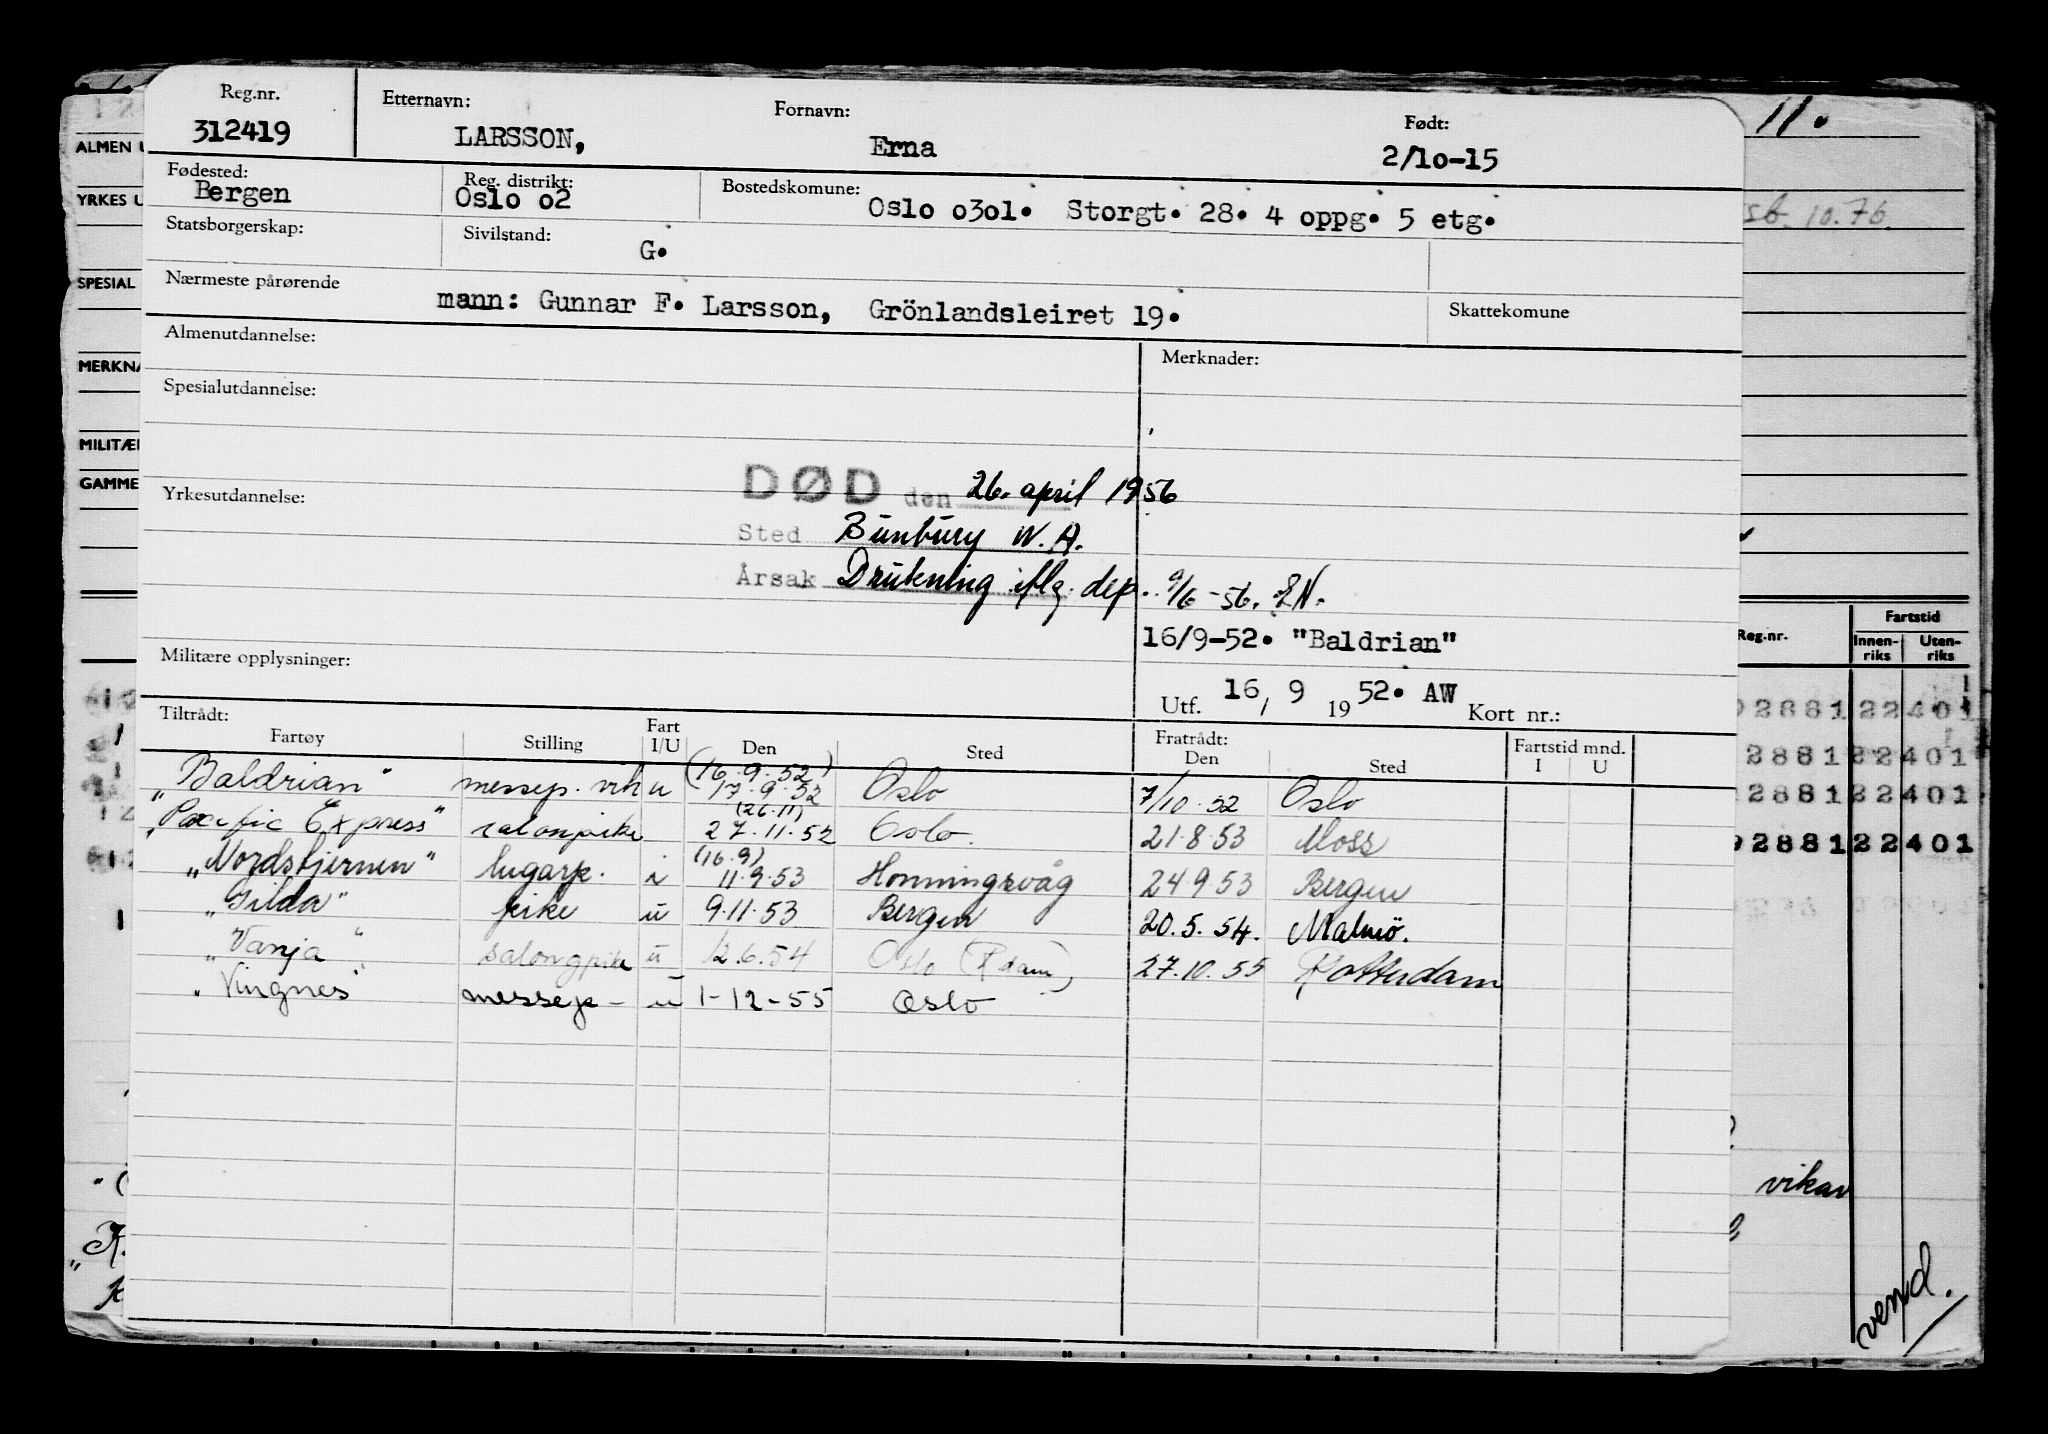 Reg.nr. Etternavn: Fornavn: Født:
312419 LARSSON, Erna 2/1o-15
Fødested: Reg. distrikt: Bostedskomune:
Bergen Oslo o2 Oslo o3o1. Storgt. 28. 4 oppg. 5 etg.
Statsborgerskap: Sivilstand: G.
Nærmeste pårørende Skattekomune
mann: Gunnar F. Larsson, Grönlandsleiret 19.
Almenutdannelse: Merknader:
Spesialutdannelse:
Yrkesutdannelse:
DØD den 26. april 1956
Sted Bunbury W.A.
Årsak Drukning iflg. dep. 9/6-56. EN.
16/9-52. "Baldrian"
Militære opplysninger:
Utf. 16/ 9 19 52. AW Kort nr.:
Tiltrådt: Fratrådt:
Fartøy Stilling Fart I/U Den Sted Den Sted Fartstid mnd. I U
"Baldrian" messep. vik u (16.9.52) 17.9.52 Oslo 7/10.52 Oslo
"Pacific Express" salonpike (26.11) 27.11.52 Oslo. 21.8.53 Moss
"Nordstjernen" lugarp. i (16.9) 11.9.53 Honningsvåg 24.9.53 Bergen
"Gilda" pike u 9.11.53 Bergen 20.5.54. Malmö.
"Vanja" salongpike u 12.6.54 Oslo (R.dam) 27.10.55 Rotterdam
"Vingnes" messep- u 1-12-55 Oslo
ALMEN U
YRKES U
SPESIAL
MERKNA
MILITÆR
GAMME
11.
10.76.
Reg.nr. Fartstid
Innen-riks Uten-riks
2881 22401
2881 22401
2881 22401
2881 22401
vikar
vend.